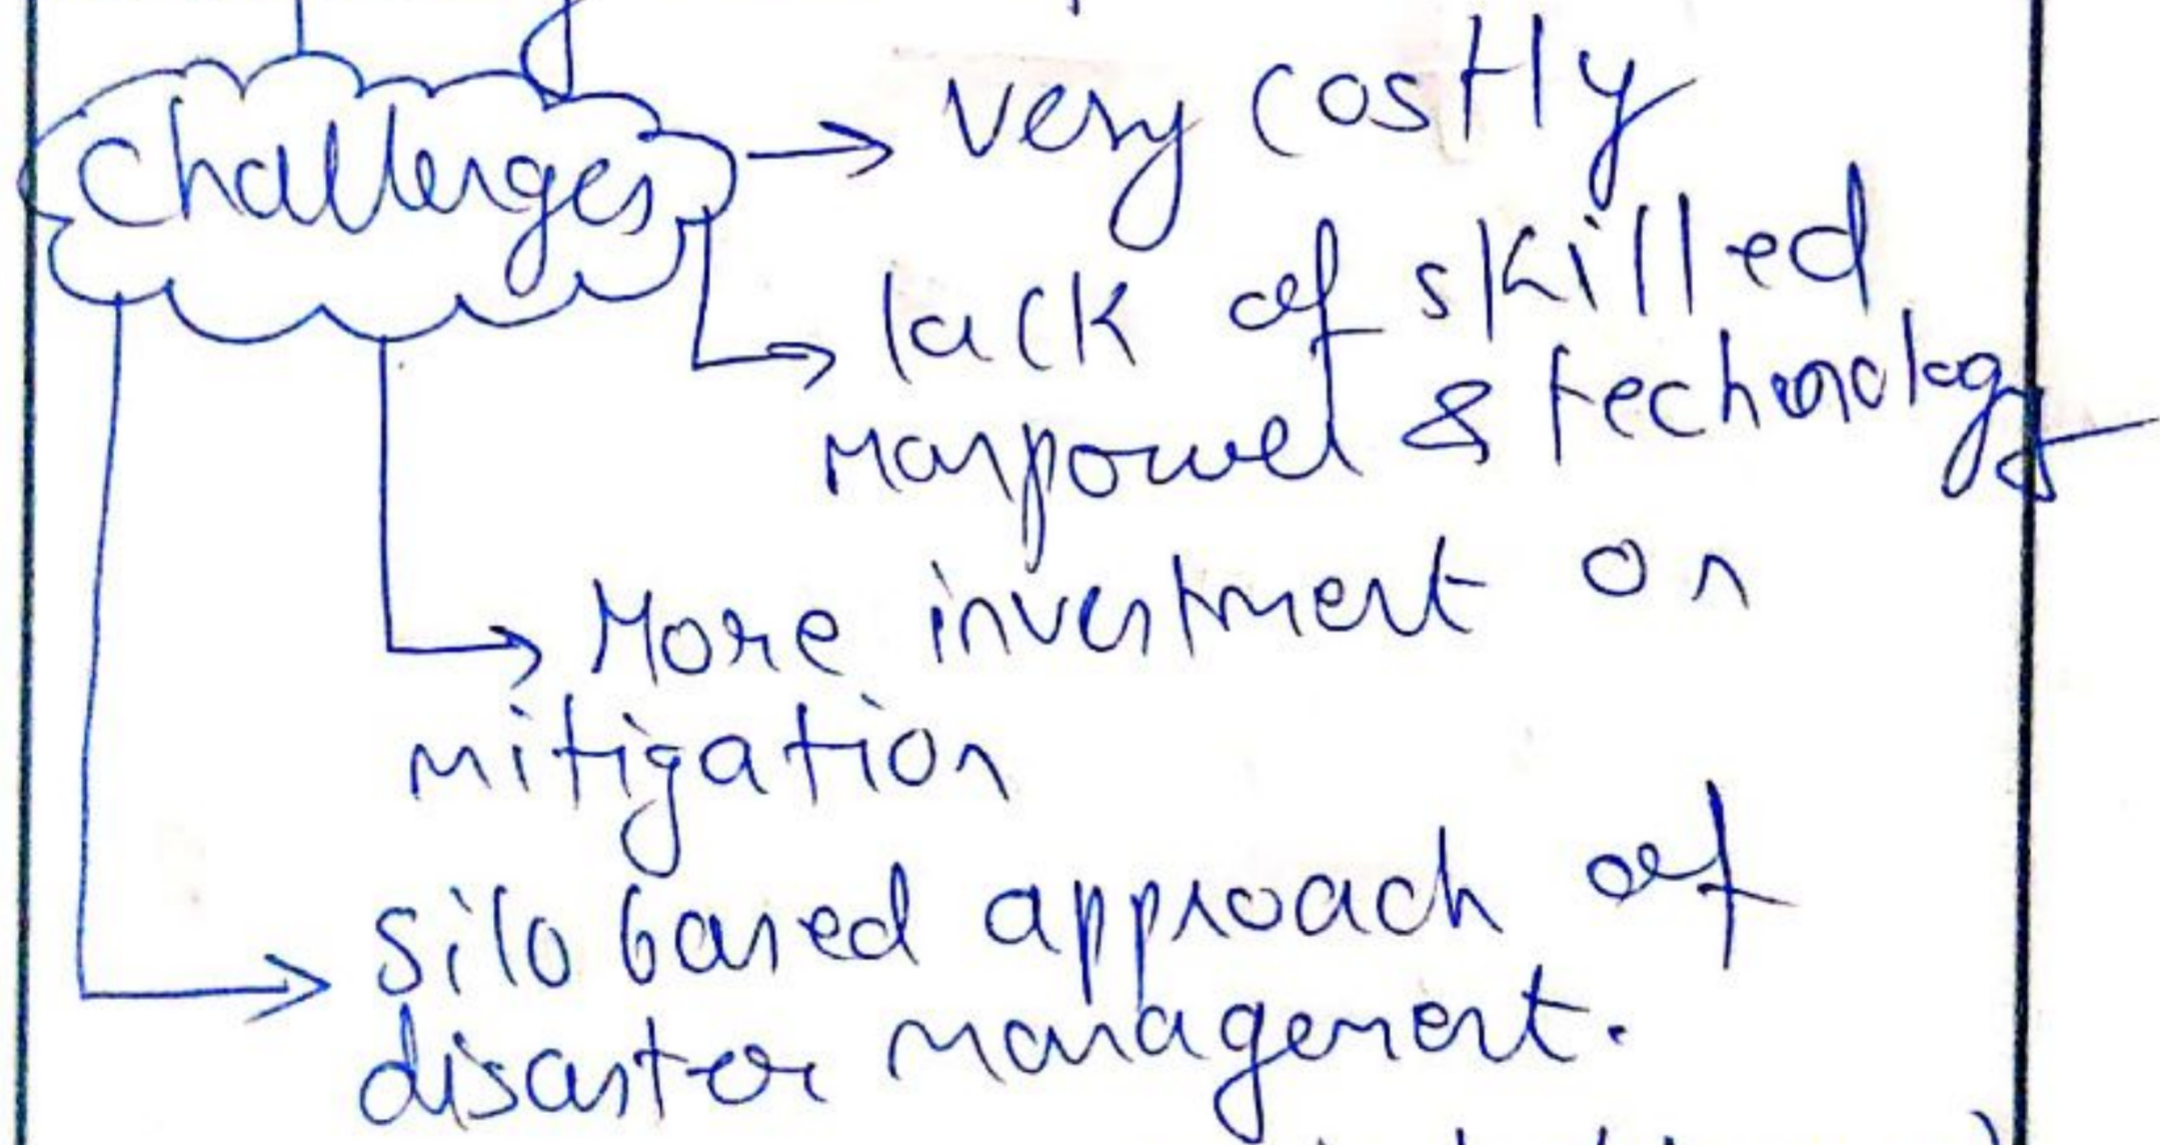 Challenges → very costly
→ lack of skilled
manpower & technology
→ More investment on
mitigation
→ silo based approach of
disaster management.